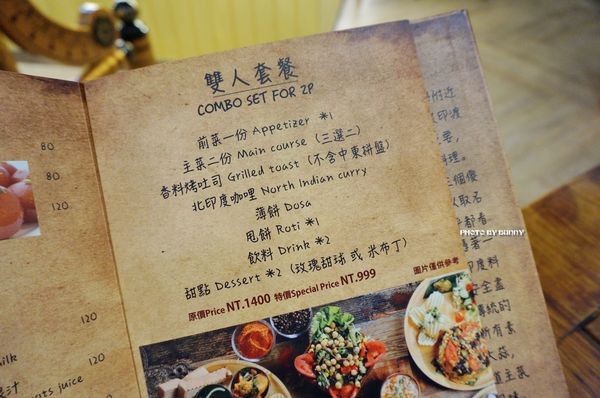 雙人套餐
COMBO SET FOR 2P
前菜一份 Appetizer *1
主菜二份 Main course (三選二)
香料烤吐司 Grilled toast (不含中東拼盤)
北印度咖哩 North Indian curry
薄餅 Dosa
甩餅 Roti *1
飲料 Drink *2
甜點 Dessert *2 (玫瑰甜球 或 米布丁)
原價Price NT.1400 特價Special Price NT.999
圖片僅供參考
80
80
120
120
milk
120
nts juice
120
附近
印度
料理。
三個優
取名
都看
著一
印度料
全蠱
傳統的
所有素
大蒜,
道主菜
PHOTO BY BUNNY